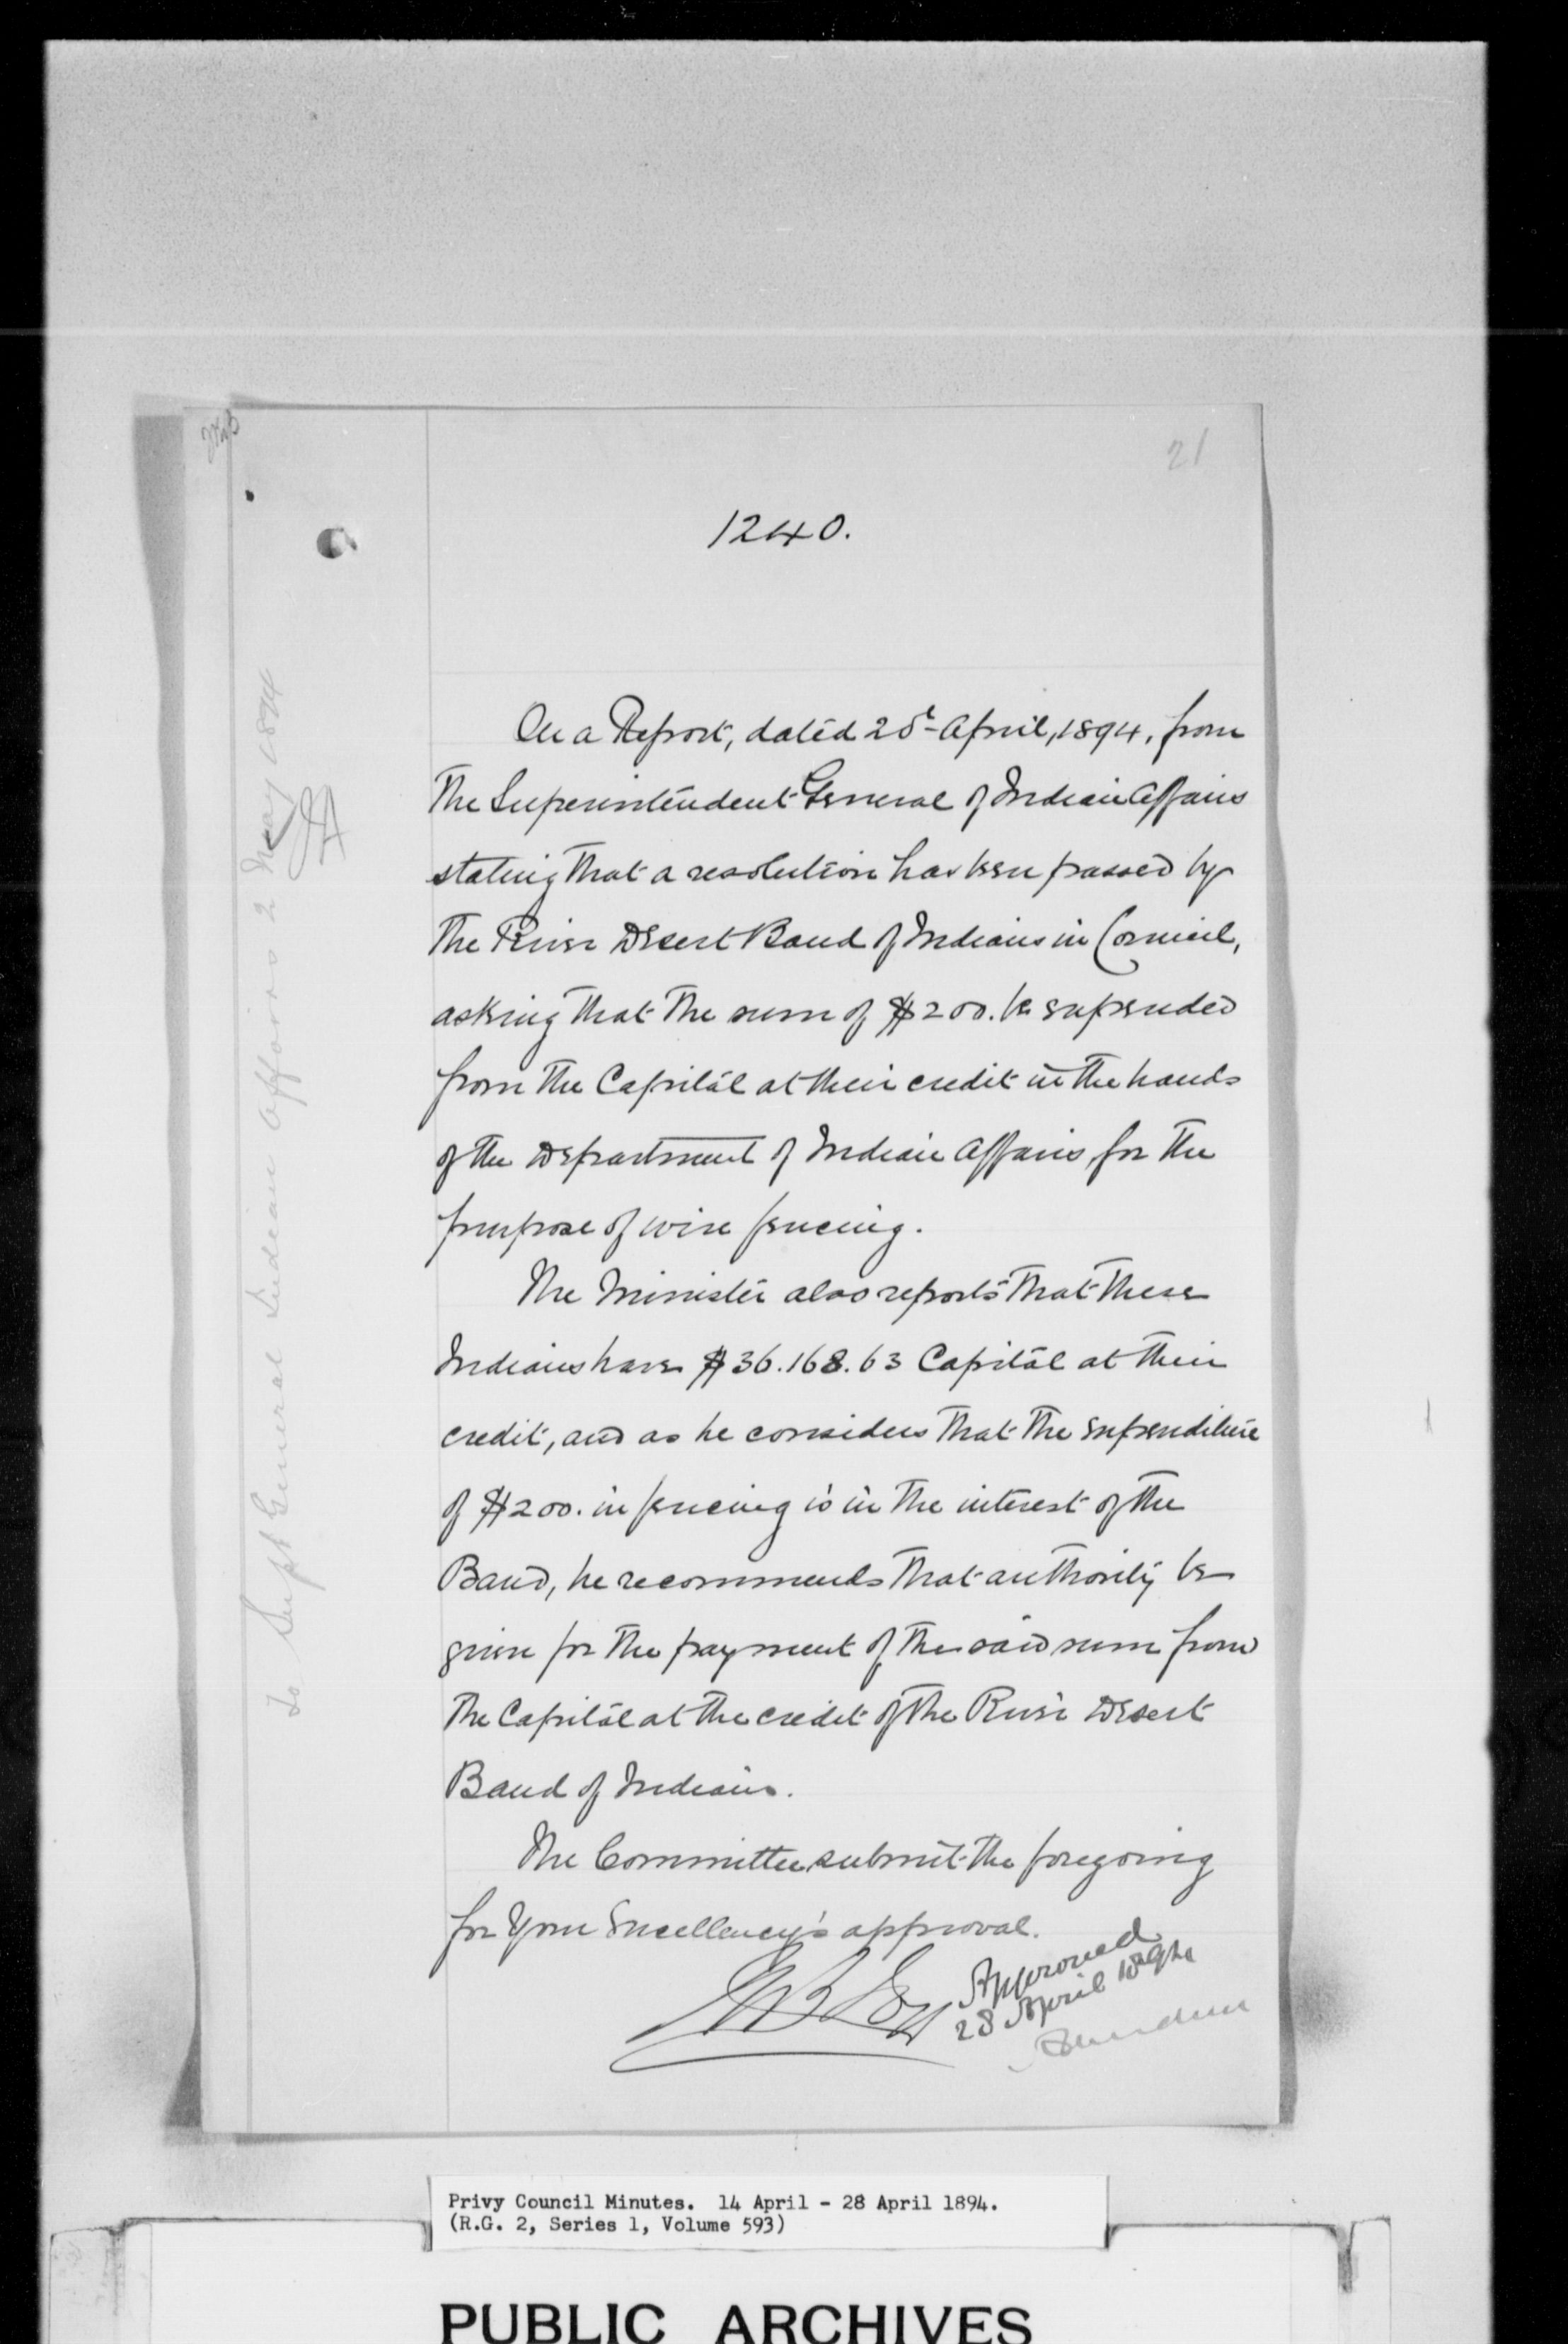 21
1240.
On a Report, dated 25 April, 1894, from
the Superintendent General of Indian Affairs
stating that a resolution has been passed by
the River Desert Band of Indians in Council,
asking that the sum of $200. be expended
from the Capital at their credit in the hands
of the Department of Indian Affairs, for the
purpose of wire fencing.
The Minister also reports that these
Indians have $36.168.63 Capital at their
credit, and as he considers that the expenditure
of $200. in fencing is in the interest of the
Band, he recommends that authority be
given for the payment of the said sum from
the Capital at the credit of the River Desert
Band of Indians.
The Committee submit the foregoing
for Your Excellency's approval.
Approved
28 April 1894
Aberdeen
To Supt General Indian Affairs 2 May 1894
Privy Council Minutes. 14 April - 28 April 1894.
(R.G. 2, Series 1, Volume 593)
PUBLIC ARCHIVES